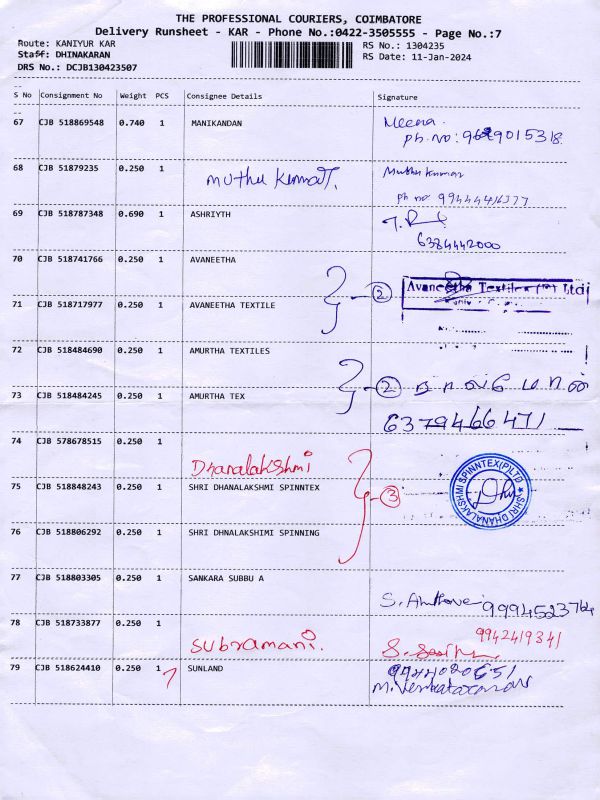 THE PROFESSIONAL COURIERS, COIMBATORE
Delivery Runsheet - KAR - Phone No.:0422-3505555 - Page No.:7
Route: KANIYUR KAR
RS No.: 1304235
Staff: DHINAKARAN
RS Date: 11-Jan-2024
DRS No.: DCJB130423507
S No Consignment No Weight PCS Consignee Details Signature
67 CJB 518869548 0.740 1 MANIKANDAN Meena
ph.no:
68 CJB 51879235 0.250 1 Muthu Kumar
ph no
69 CJB 518787348 0.690 1 ASHRIYTH
6384442000
70 CJB 518741766 0.250 1 AVANEETHA
2 Avaneetha Textiles (P) Ltd
71 CJB 518717977 0.250 1 AVANEETHA TEXTILE
72 CJB 518484690 0.250 1 AMURTHA TEXTILES
2
73 CJB 518484245 0.250 1 AMURTHA TEX
6379466471
74 CJB 578678515 0.250 1 Dhanalakshmi
75 CJB 518848243 0.250 1 SHRI DHANALAKSHMI SPINNTEX 3 SHRI DHANALAKSHMI SPINNTEX(P)LTD
76 CJB 518806292 0.250 1 SHRI DHNALAKSHIMI SPINNING
77 CJB 518803305 0.250 1 SANKARA SUBBU A
9994523764
78 CJB 518733877 0.250 1 Subramani. 9942419341
79 CJB 518624410 0.250 1 SUNLAND
M. Venkataraman